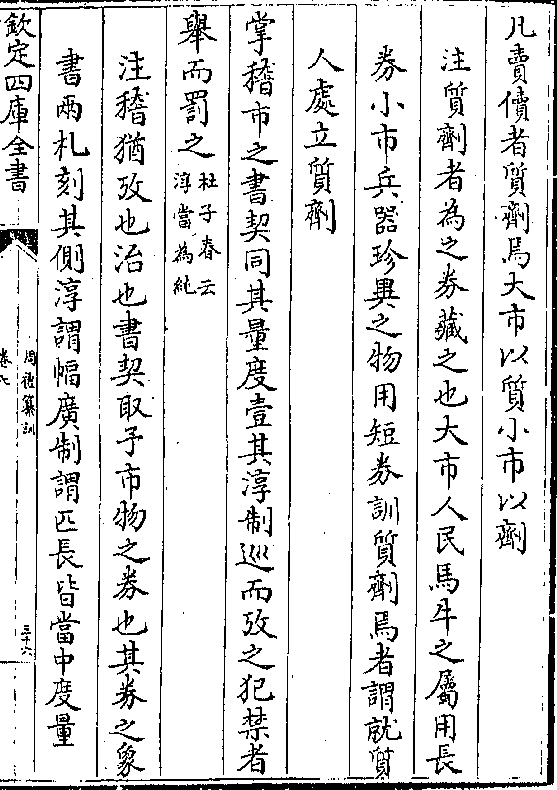 凡賣儥者質劑焉大市以質小市以劑
注質劑者為之券藏之也大市人民馬牛之屬用長
券小市兵器珍異之物用短券訓質劑焉者謂就質
人處立質劑
掌稽市之書契同其量度壹其淳制巡而攷之犯禁者
舉而罰之
杜子春云
淳當為純
注稽猶攷也治也書契取予市物之券也其券之象
書兩札刻其側淳謂幅廣制謂匹長皆當中度量
欽定四庫全書
周禮纂訓
卷七
三十六